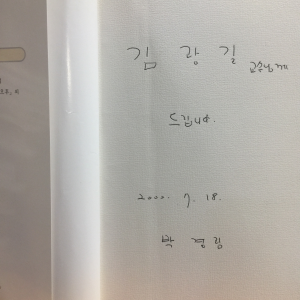 김 광 길 교수님께
드립니다.
2000. 7. 18.
박 경 림